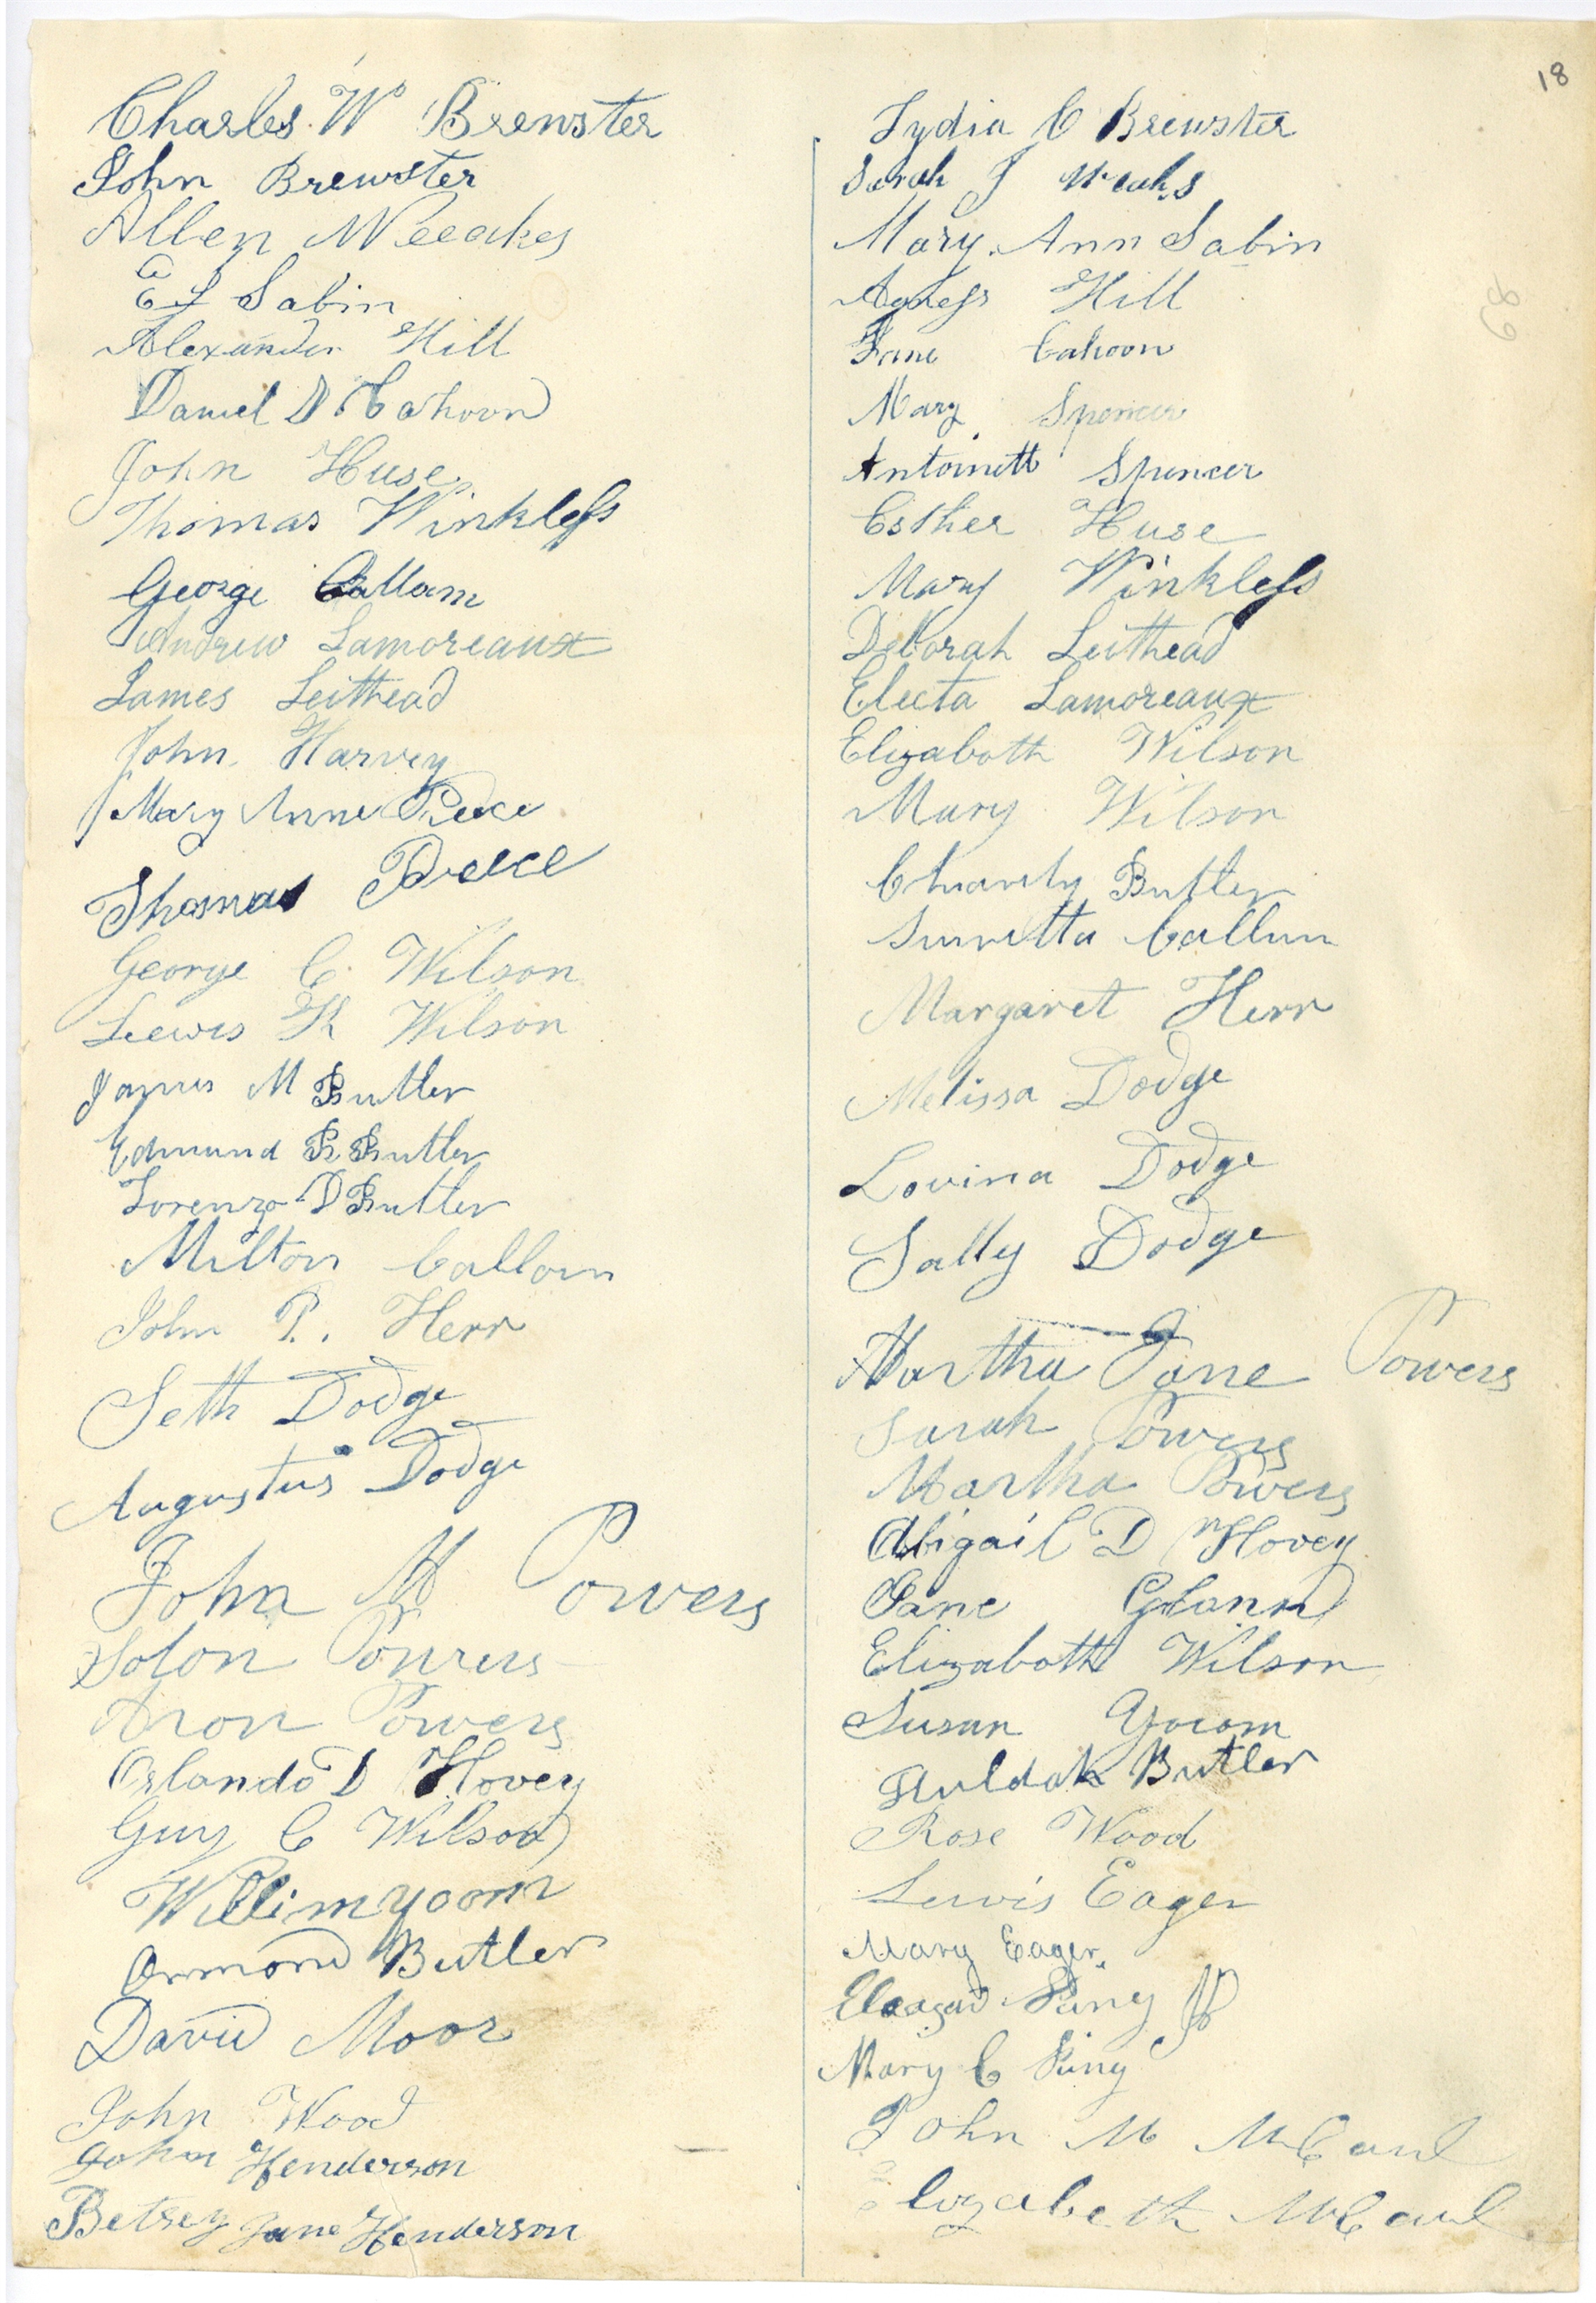 18
Charles W Brewster
John Brewster
Allen Weeakes
A
E S Sabin
Alexander Hill
Daniel D Cahoon
John Huse
Thomas Winkless
George Callam
Andrew Lamoreaux
James Leithead
John Harvey
Mary Anne Peece
Thomas Preece
George C. Wilson
Leewis K Wilson
James M Butler
Edmund R Butler
Lorenzo D Butler
Milton Callam
John P. Herr
Seth Dodge
Augustus Dodge
John M Powers
Solon Powers
Aron Powers
Orlando D Hovey
Guy C Wilson
Willim yoom
Ormond Butler
David Moor
John Wood
John Henderson
Betsey Jane Henderson
Lydia C Brewster
Sarah J Weaks
Mary Ann Sabin
Agness Hill
Jane Cahoon
Mary Spencer
Antoinett Spencer
Esther Huse
Mary Winkless
Deborah Leithead
Electa Lamoreaux
Elizaboth Wilson
Mary Wilson
Charity Butler
Callum
Margaret Herr
Melissa Dodge
Lovina Dodge
Sally Dodge
Martha Jane Powers
Sarah Powers
Martha Powers
Abigail D Hovey
Jane
Elizaboth Wilson
Susan Yocom
Huldah Butler
Rose Wood
Lewis Eager
Mary Eager
King Jr
Mary C King
John M McCaul
Elizabeth McCaul
68